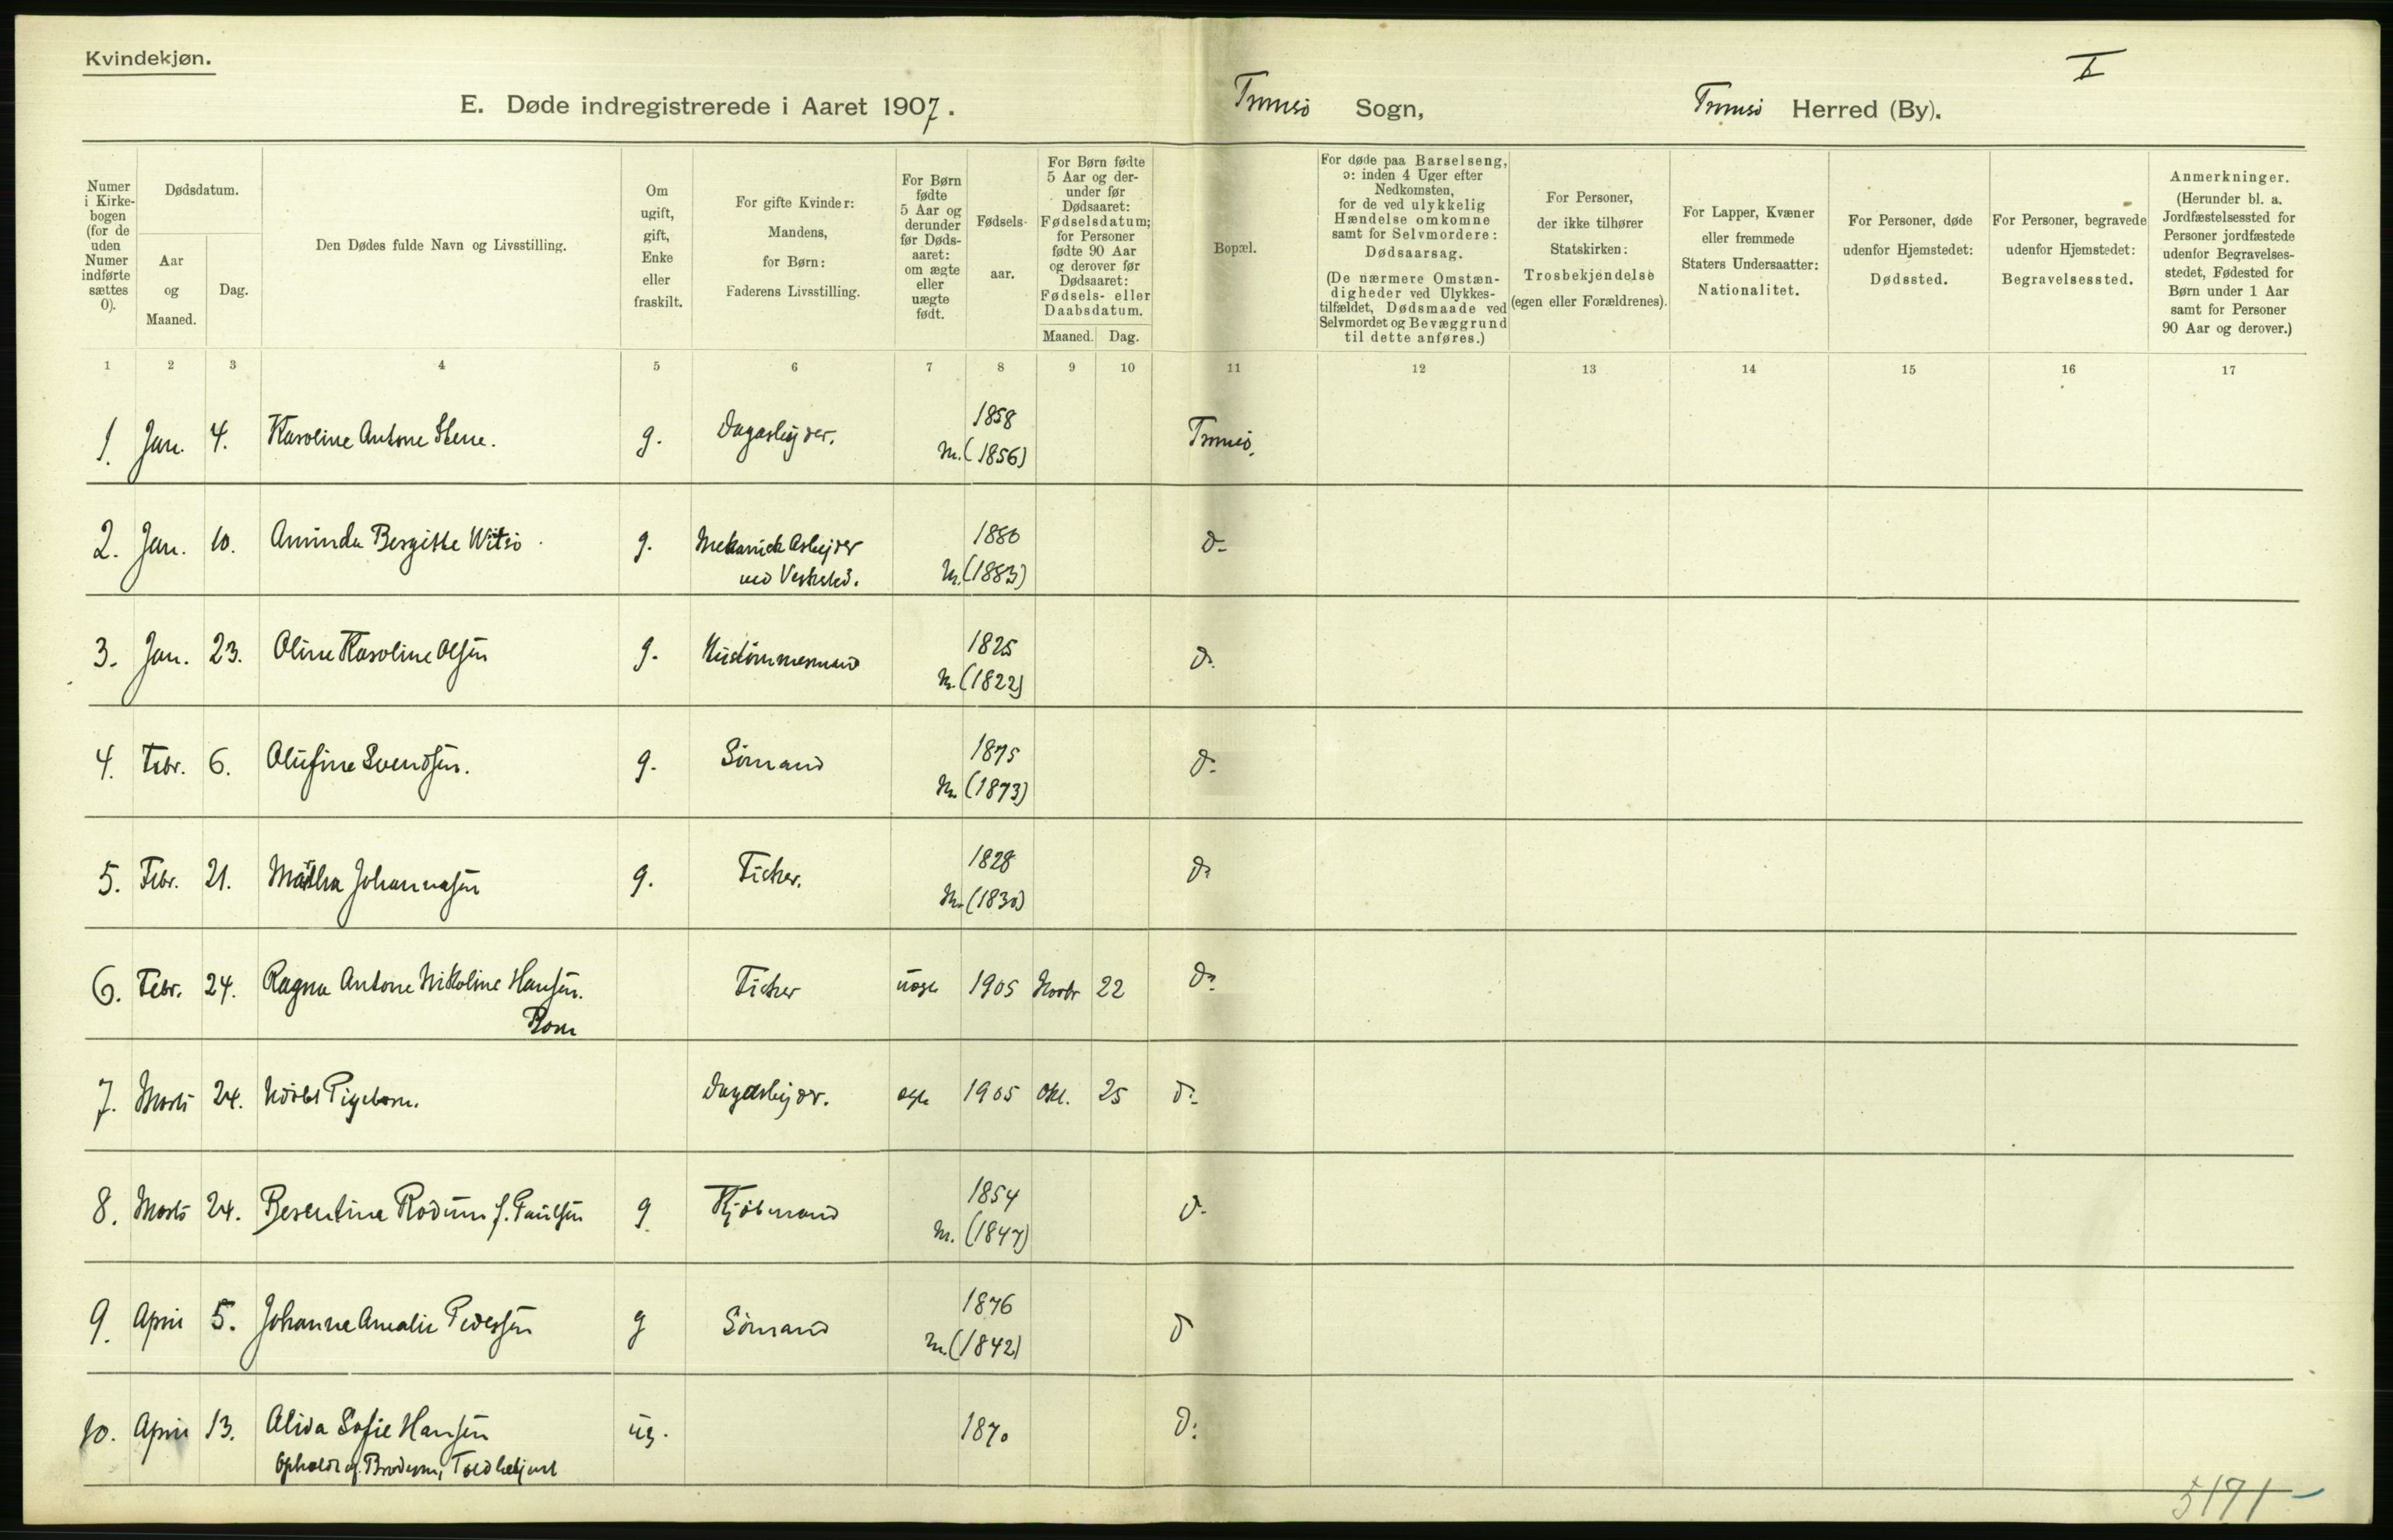 Kvindekjøn.
I
E. Døde indregistrerede i Aaret 1907. Tromsø Sogn, Tromsø Herred (By).
Numer i Kirkebogen (for de uden Numer indførte sættes 0).
Dødsdatum.
Aar og Maaned.
Dag.
Den Dødes fulde Navn og Livsstilling.
Om ugift, gift, Enke eller fraskilt.
For gifte Kvinder: Mandens, for Børn: Faderens Livsstilling.
For Børn fødte 5 Aar og derunder før Dødsaaret: om ægte eller uægte født.
Fødselsaar.
For Børn fødte 5 Aar og derunder før Dødsaaret: Fødselsdatum; for Personer fødte 90 Aar og derover før Dødsaaret: Fødsels- eller Daabsdatum.
Maaned. Dag.
Bopæl.
For døde paa Barselseng, ɔ: inden 4 Uger efter Nedkomsten, for de ved ulykkelig Hændelse omkomne samt for Selvmordere: Dødsaarsag. (De nærmere Omstændigheder ved Ulykkestilfældet, Dødsmaade ved Selvmordet og Bevæggrund til dette anføres.)
For Personer, der ikke tilhører Statskirken: Trosbekjendelse (egen eller Forældrenes).
For Lapper, Kvæner eller fremmede Staters Undersaatter: Nationalitet.
For Personer, døde udenfor Hjemstedet: Dødssted.
For Personer, begravede udenfor Hjemstedet: Begravelsessted.
Anmerkninger. (Herunder bl. a. Jordfæstelsessted for Personer jordfæstede udenfor Begravelsesstedet, Fødested for Børn under 1 Aar samt for Personer 90 Aar og derover.)
1 2 3 4 5 6 7 8 9 10 11 12 13 14 15 16 17
1. Jan. 4. Karoline Antone Stene. g. Dagarbejder. 1858 Tromsø.
M. (1856)
2. Jan. 10. Aminda Bergitte Witsø g. Mekanisk Arbejder 1880 do
ved Verksted. M. (1883)
3. Jan. 23. Oline Karoline Olsen g. Hustømmermand 1825 do
M. (1822)
4. Febr. 6. Olufine Svendsen. g. Sømand 1875 do
M. (1873)
5. Febr. 21. Martha Johannesen g. Fisker. 1828 do
M. (1830)
6. Febr. 24. Ragna Antone Nikoline Hansen. Fisker uægte 1905 Novbr 22 do
Barn
7. Marts 24. Udøbt Pigebarn. Dagarbejder. ægte 1905 Okt. 25 do
8. Marts 24. Berentine Rødum f. Paulsen g Kjøbmand 1854 do
M. (1847)
9. April 5. Johanne Amalie Pedersen g Sømand 1876 do
M. (1842)
10. April 13. Alida Sofie Hansen ug. 1870 do
Ophold af Broderen, Toldbetjent
5171 -